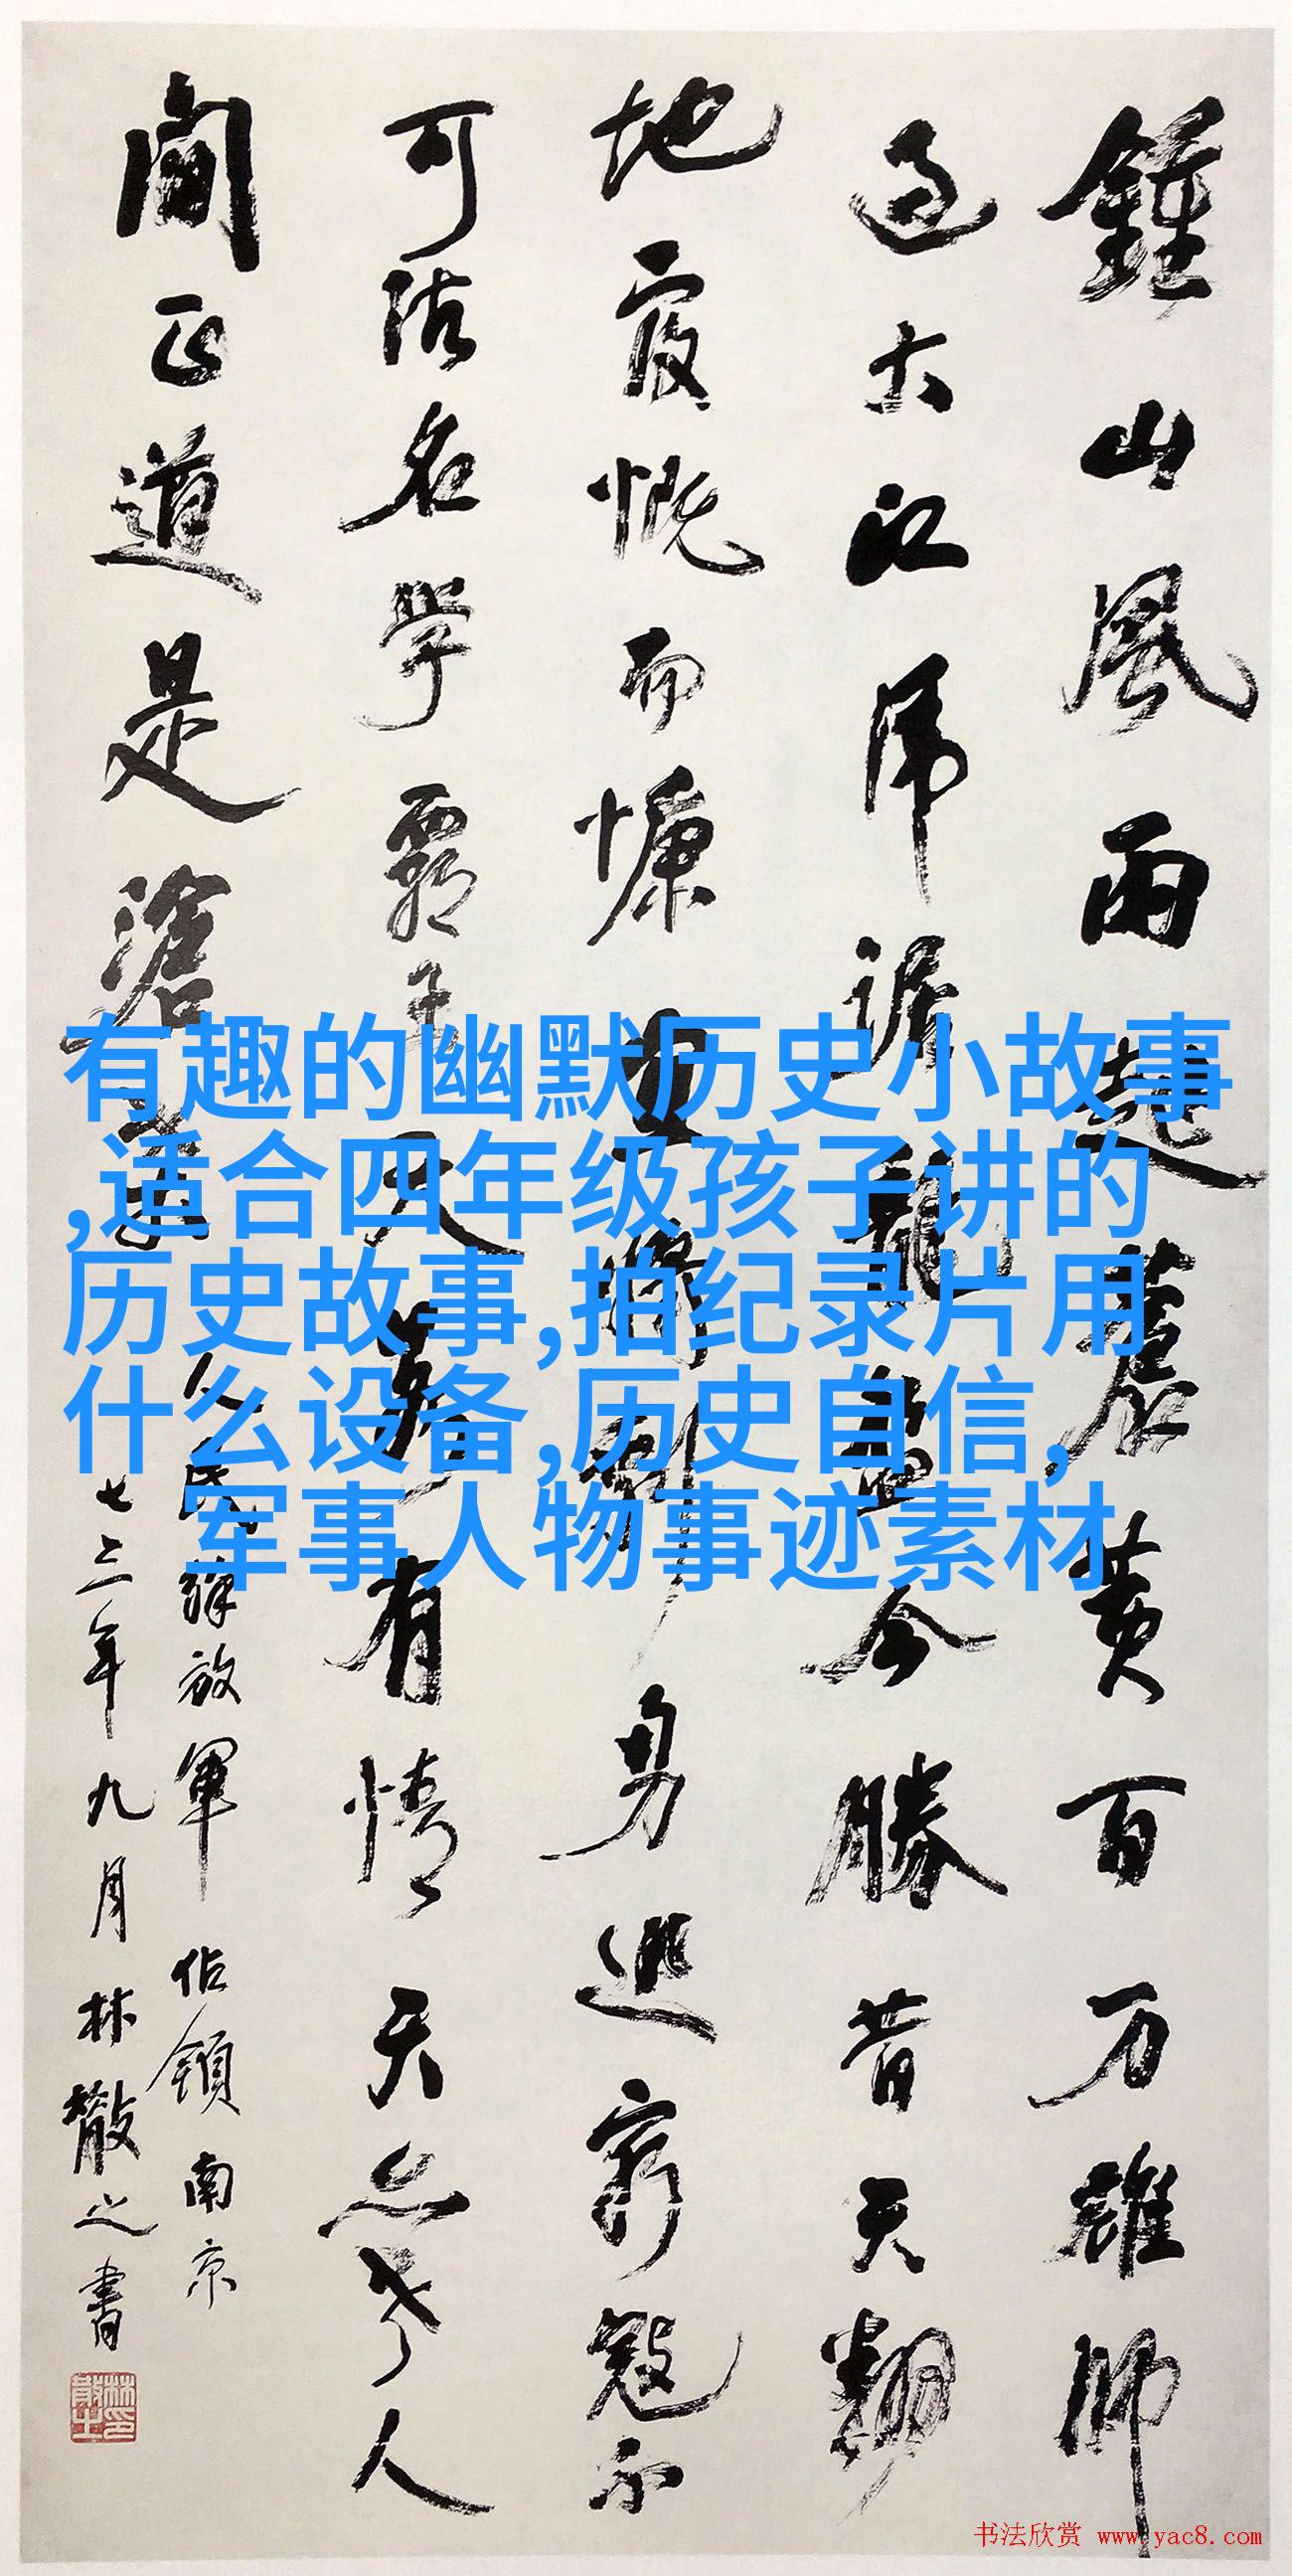 鍾山風雨起蒼黃百万雄師
過大江虎踞龍盤今勝昔天翻
地覆慨而慷宜將剩勇追窮寇不
可沽名學霸王天若有情天亦老人
間正道是滄桑
人民解放軍佔領南京
七三年九月林散之書
有趣的幽默历史小故事
,适合四年级孩子讲的
历史故事,拍纪录片用
什么设备,历史自信,
军事人物事迹素材
书法欣赏 www.yac8.com